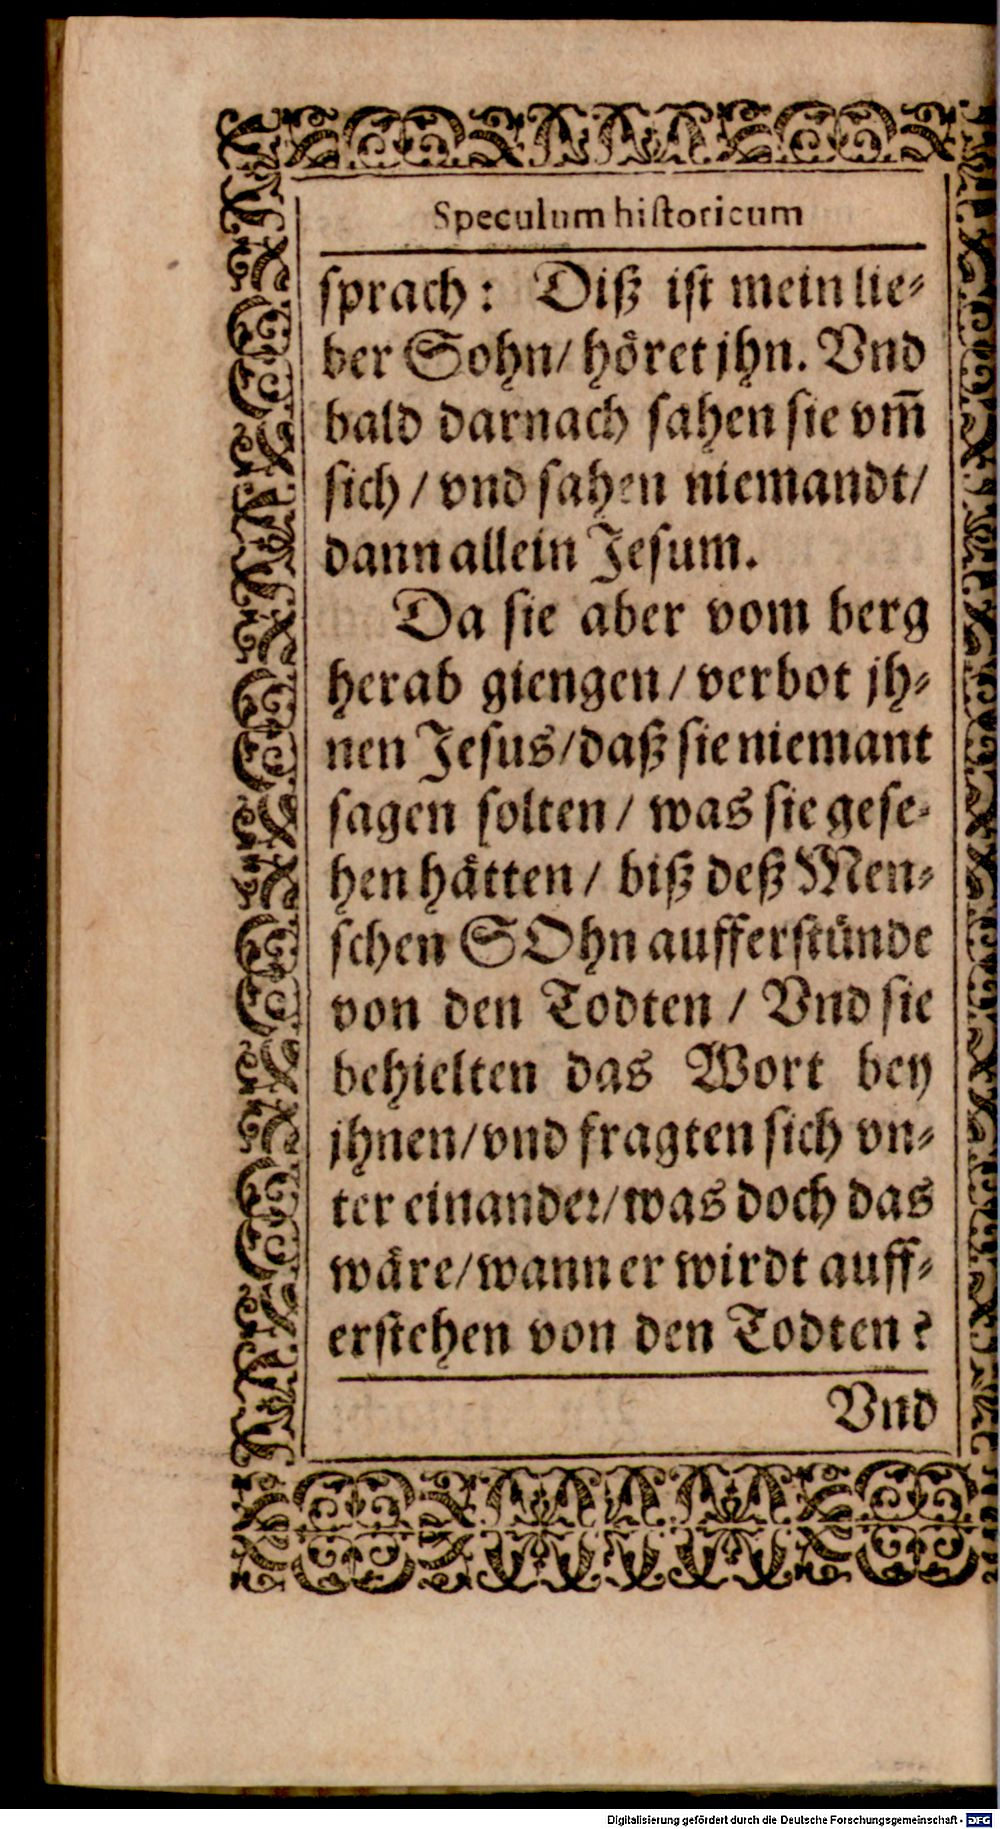 Speculum hiſtoricum
sprach: Diß ist mein lie⸗
ber Sohn/ höret jhn. Vnd
bald darnach sahen sie vm̃
sich / vnd sahen niemandt/
dann allein Jesum.
Da sie aber vom berg
herab giengen / verbot jh⸗
nen Jesus/daß sie niemant
sagen solten / was sie gese⸗
hen hätten / biß deß Men⸗
schen SOhn aufferstünde
von den Todten / Vnd sie
behielten das Wort bey
jhnen/vnd fragten sich vn⸗
ter einander/was doch das
wäre/wann er wirdt auff⸗
erstehen von den Todten?
Vnd
Digitalisierung gefördert durch die Deutsche Forschungsgemeinschaft - DFG